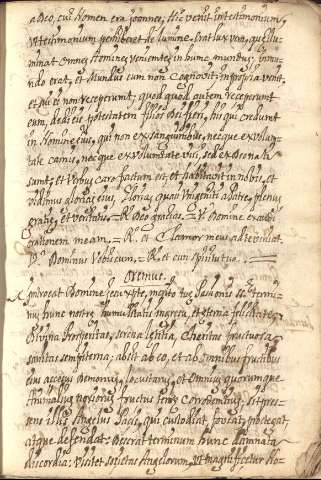 a Deo, cui Nomen era joannes, Hic venit in testimonium,
ut testimonium perhiberet de lumine. Erat lux vera, que illu-
minat omnes homines, veniente, in hunc mundus, in mu-
ndo erat, et Mundus eum non Cognovit, in propia venit
et sui e, non receperunt, quod quod autem receperunt
eum, dedit eis potestatem filios Dei fieri, his qui credunt
in Nomine ejus, qui non ex sanguinibus, neque ex volun-
tate carnis, neque ex voluntate viri, sed ex Deo nati
sunt, et Verbus caro factum est, et habitavit in nobis, et
vidimus gloria ejus, Gloria, quasi Unigeniti a Patre, plenus
gratie, et veritatis = R. Deo gratias. = V. Domine exaudi
orationem meam = R. et Clamor meus ad te veniat.
V. Dominus Vobiscum = R. et cum Spiritu tuo. =
Oremus.
Domine
hunc nostre humilitatis et eterna felicitate,
Divina Prosperitas, serena letitia, Charitas fructuosa
sanitas sempiterna; abeit ab eo, et ab omnibus fructibus
ejus accessus Demonum, locustarum, et Omnium quorumque
Animalius noxiorus fructus terre Corrodentius. sit pres-
sens illis Angelus Pacis, qui custodiat, foveat, protegat,
atque defendat: Deserat terminum hunc damnata
discordia: Visitet societas Angelorum, ut magnificetur